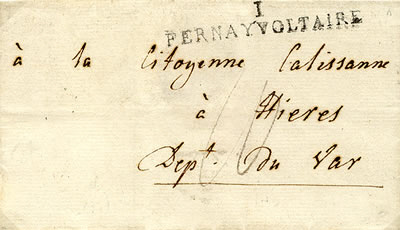 1
FERNAYVOLTAIRE
à la Citoyenne Calissanne
à Hieres
Dept. Du Var